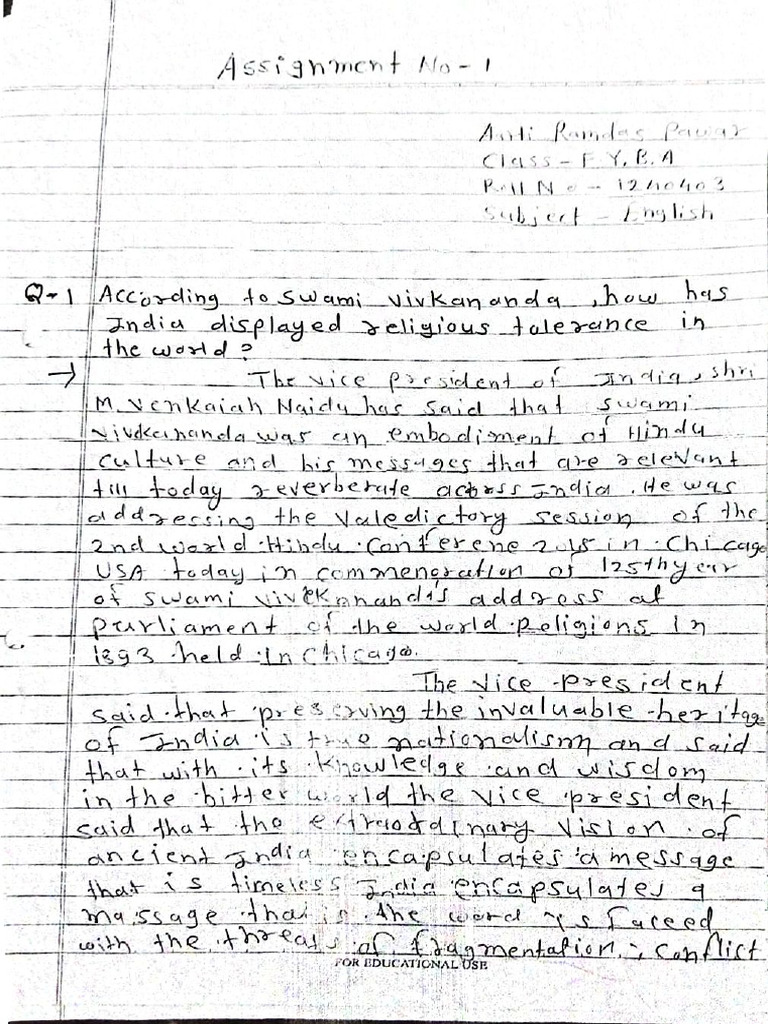 Assignment No - 1
Arti Ramdas Pawar
Class - F.Y.B.A
Roll No - 1240403
Subject - English
Q-1 According to Swami Vivkananda, how has
India displayed religious tolerance in
the world?
→ The vice president of India, shri
M. Venkaiah Naidu has said that swami
vivekananda was an embodiment of Hindu
culture and his messages that are relevant
till today reverberate across India. He was
addressing the valedictory session of the
2nd world Hindu Conferene in Chicago
USA today in commenoration of 125th year
of swami vivekananda's address at
parliament of the world Religions in
1893 held in Chicago.
The vice president
said that preserving the invaluable heritage
of India is true nationalism and said
that with its knowledge and wisdom
in the bitter world the vice president
said that the extraordinary vision of
ancient India encapsulates a message
that is timeless India encapsulates a
massage that is the word is faceed
with the threats of fragmentation, conflict
FOR EDUCATIONAL USE